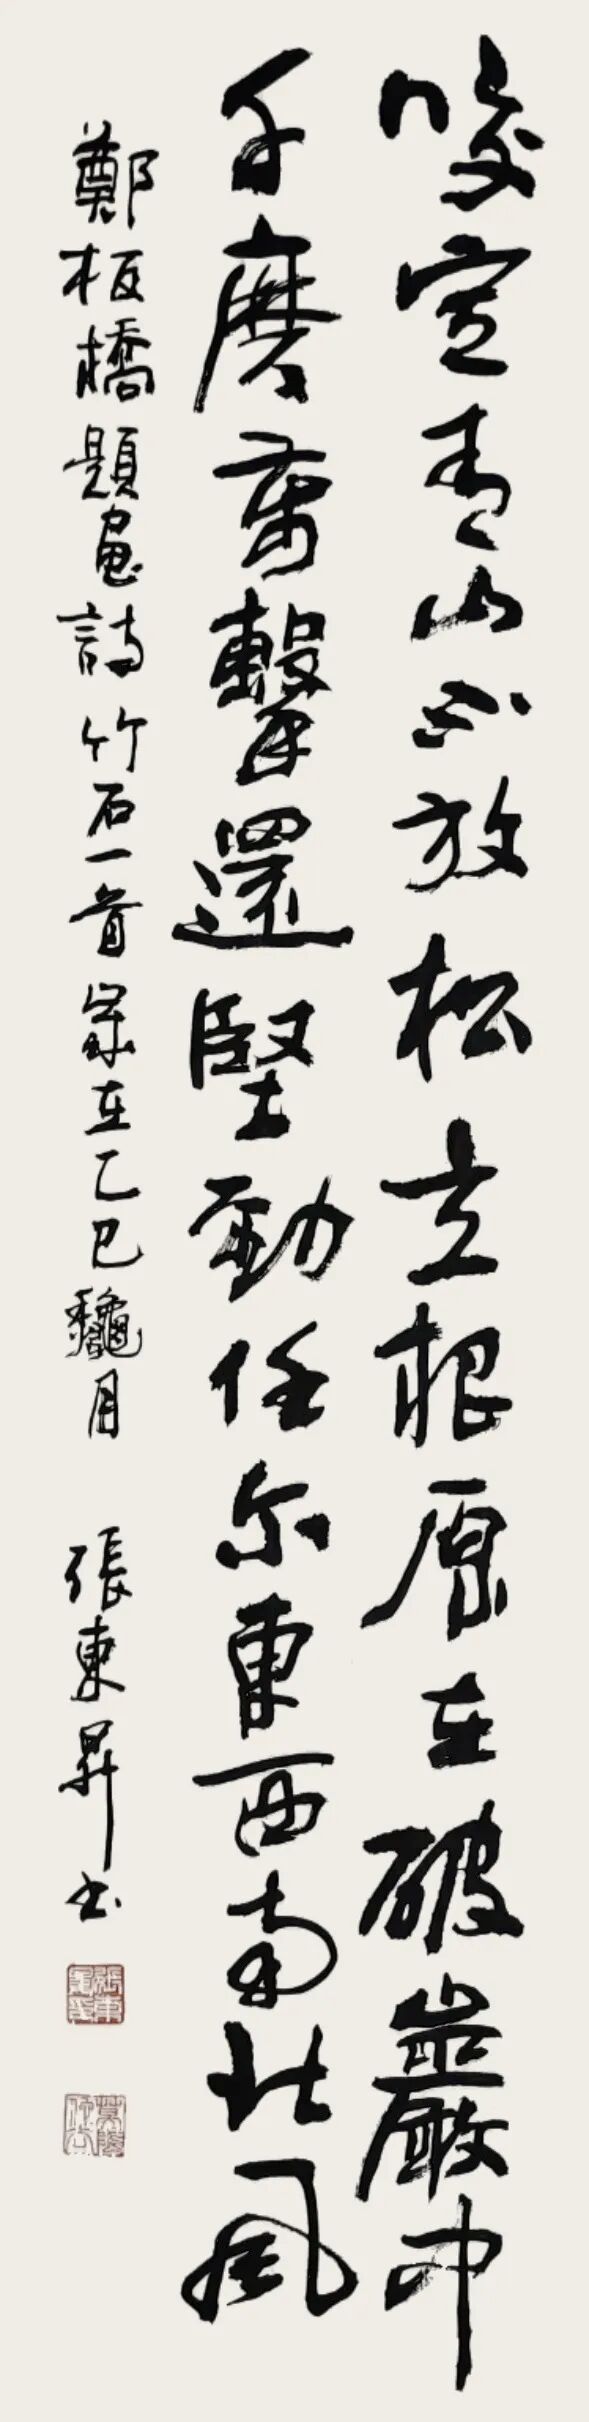 咬定青山不放松立根原在破巖中
千磨萬擊還堅勁任尔東西南北風
鄭板橋題畫詩竹石一首录在乙巳龝月
張東昇书